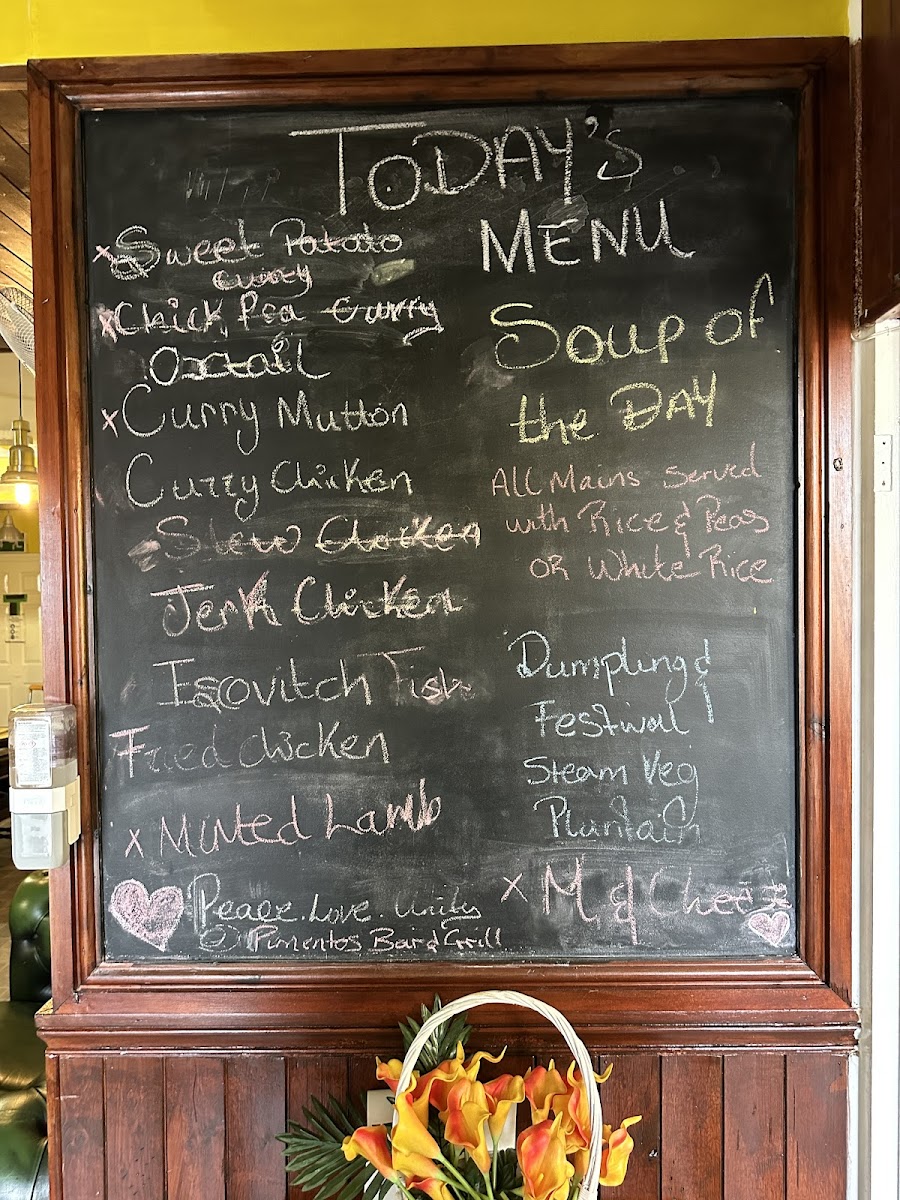 TODAY'S
MENU
x Sweet Potato
curry
x Chick Pea Curry
Oxtail
x Curry Mutton
Curry Chicken
Stew Chicken
Jerk Chicken
Iscovitch Fish
Fried chicken
x Minted Lamb
Peace. Love. Unity
@ Pimentos Bar & Grill
Soup of
the DAY
All Mains served
with Rice & Peas
OR White Rice
Dumpling &
Festival
Steam Veg
Plantain
x M & Cheese